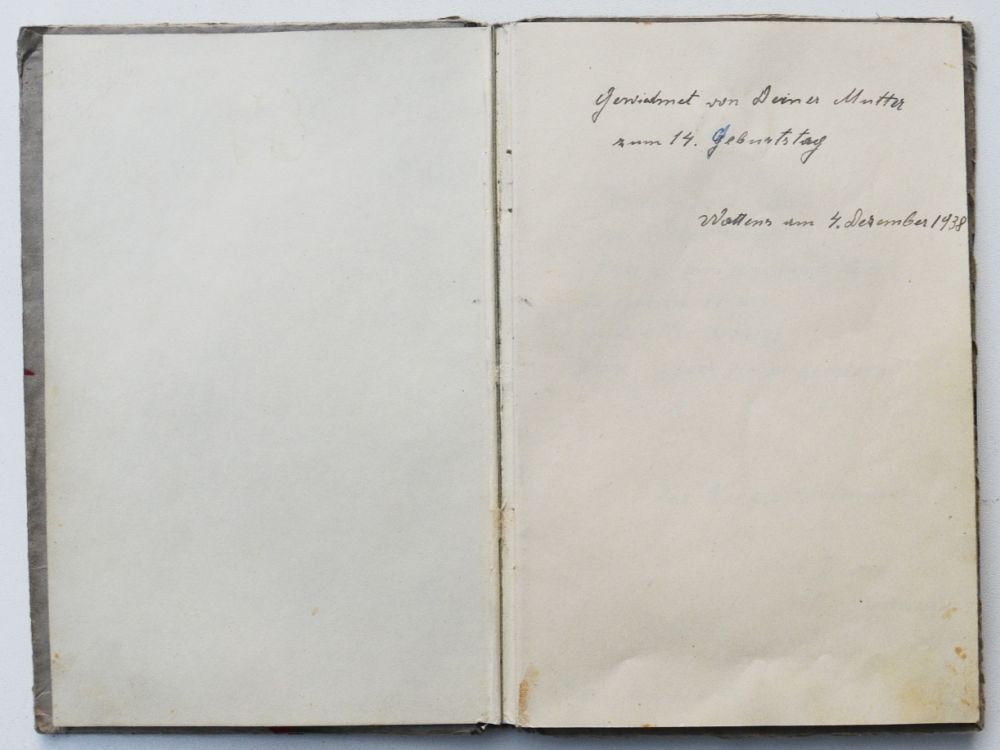 Gewidmet von Deiner Mutter
zum 14. Geburtstag
Wattens am 4. Dezember 1938